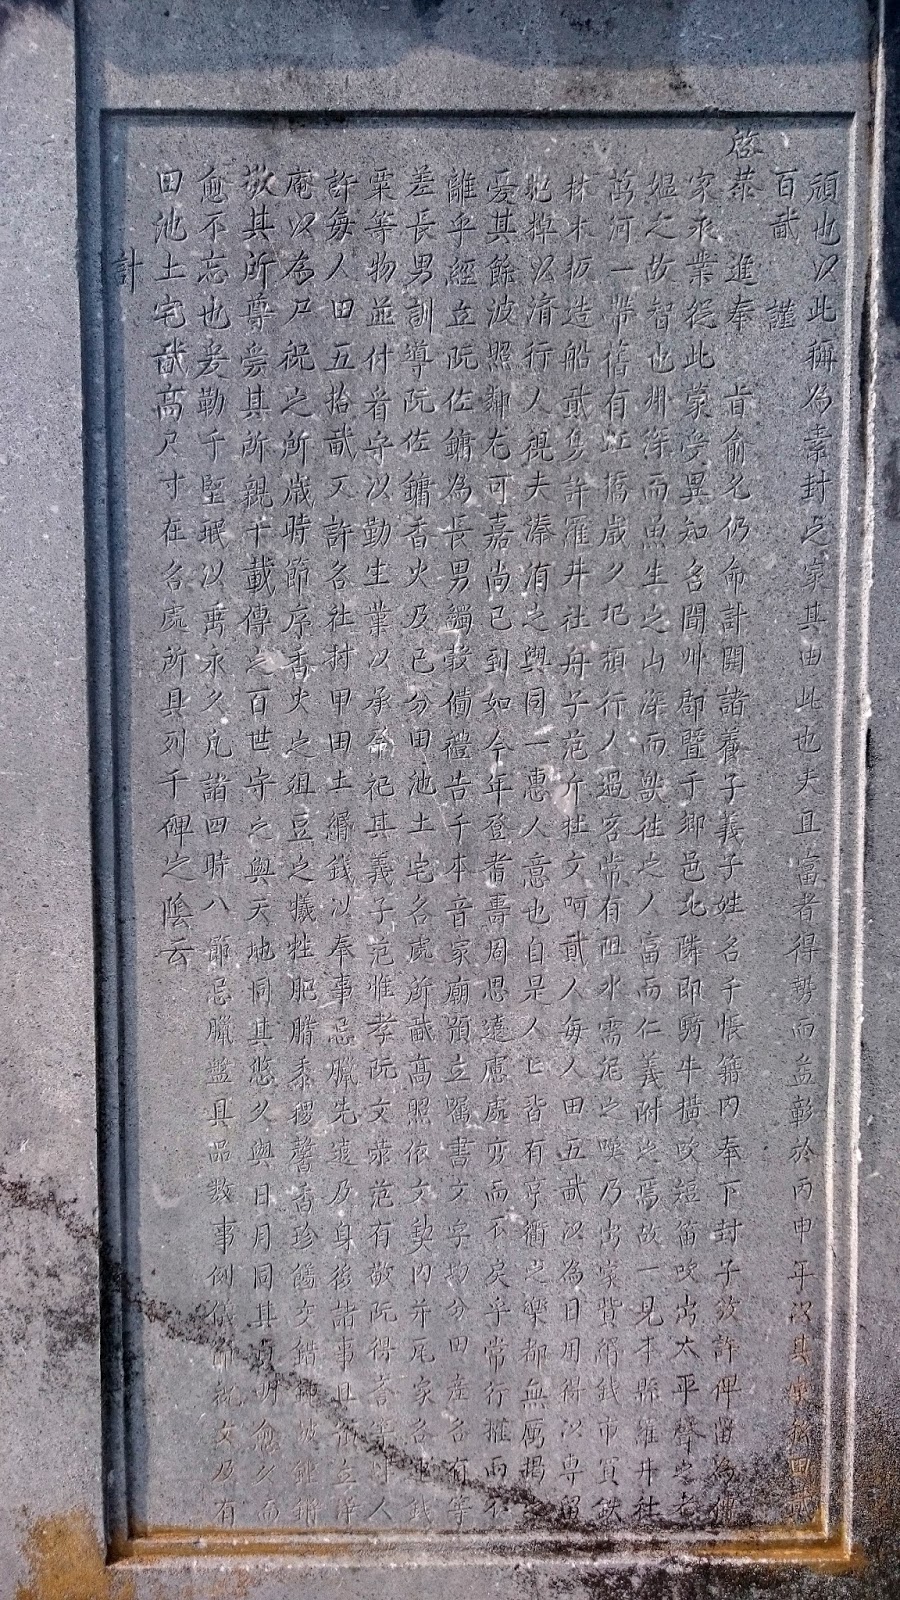 頑也以此稱為素封之家其由此也夫且富者得勢而益彰於丙申年以其田貳
百畝　謹
啓
恭　進奉　旨俞允仍命計開諸養子義子姓名于帳籍內奉下封子孜許俾留為傳
家永業從此蒙受異知名聞州郡暨于鄉邑北隣即騎牛橫吹短笛吹出太平聲之老
媼之故智也淵深而魚生之山深而獸往之人富而仁義附之焉故一見本縣羅井社
萬河一帶舊有虹橋歲久圮頹行人過客常有阻水需泥之嘆乃出家貲緡錢市買鉄
林木板造船貳隻許羅井社舟子范斤社文呵貳人每人田五畝以為日用得以專留
把棹以濟行人視夫溱洧之輿同一惠人意也自是人匕皆有亨衢之樂都無厲揭之
憂其餘波照鄰尤可嘉尚已到如今年登耆壽周思遠慮處变而不戾乎常行權而不
離乎經立阮佐鏞為長男蠲穀備禮告于本音家廟預立囑書文字均分田産各有等
差長男訓導阮佐鏞香火及已分田池土宅各處所畝高照依文契內并瓦家各
粟等物並付者守以勤生業以承宗祀其義子范惟孝阮文荣范有敬阮得者等人
許每人田五拾畝又許各社村甲田土緡錢以奉事忌臘先遠乃身後諸事且立淨
庵以為尸祝之所歲時節序香火之俎豆之犧牲肥腯黍稷馨香珍饈交錯
敬其所尊愛其所親千載傳之百世守之與天地同其悠久與日月同其貞明愈久而
愈不忘也爰勒于堅珉以壽永久凡諸四時八節忌臘盤具品数事例儀節祝文及有
田池土宅畝高尺寸在各處所具列于碑之陰云
計